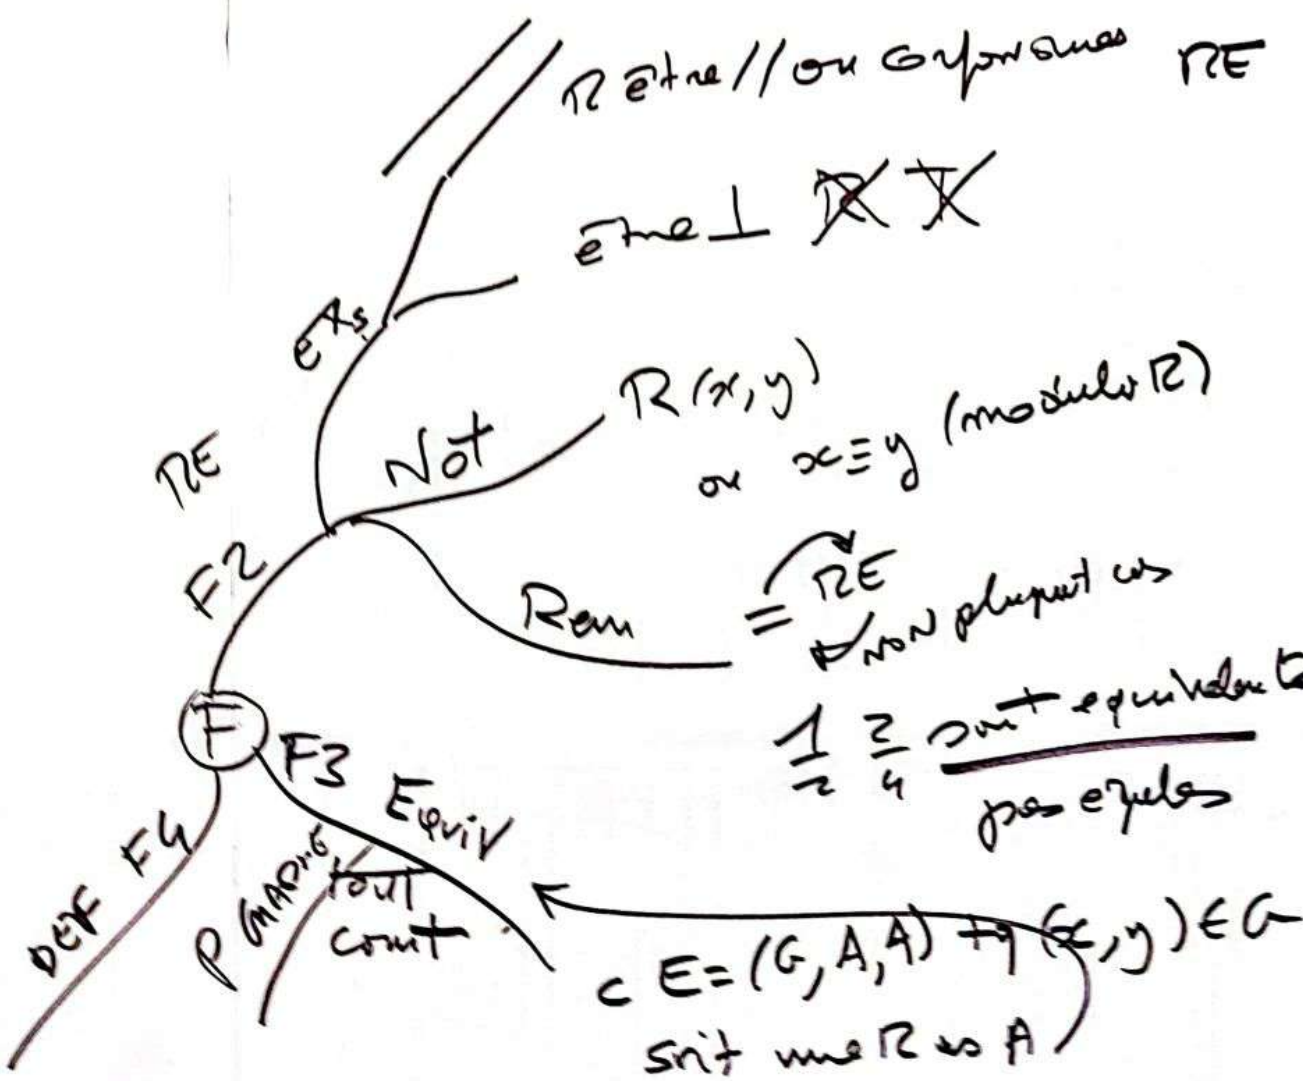 R être // ou confondues RE
être ⊥ R T
exs
Not R(x,y)
ou x ≡ y (modulo R)
RE
F2
Rem = RE
NON plupart cas
1/2 2/4 sont equivalentes
pas egales
F
F3 Equiv
tout
cont
P GRAPHE
DEF F4
c E=(G,A,A) tq (x,y)∈G
soit une R ds A